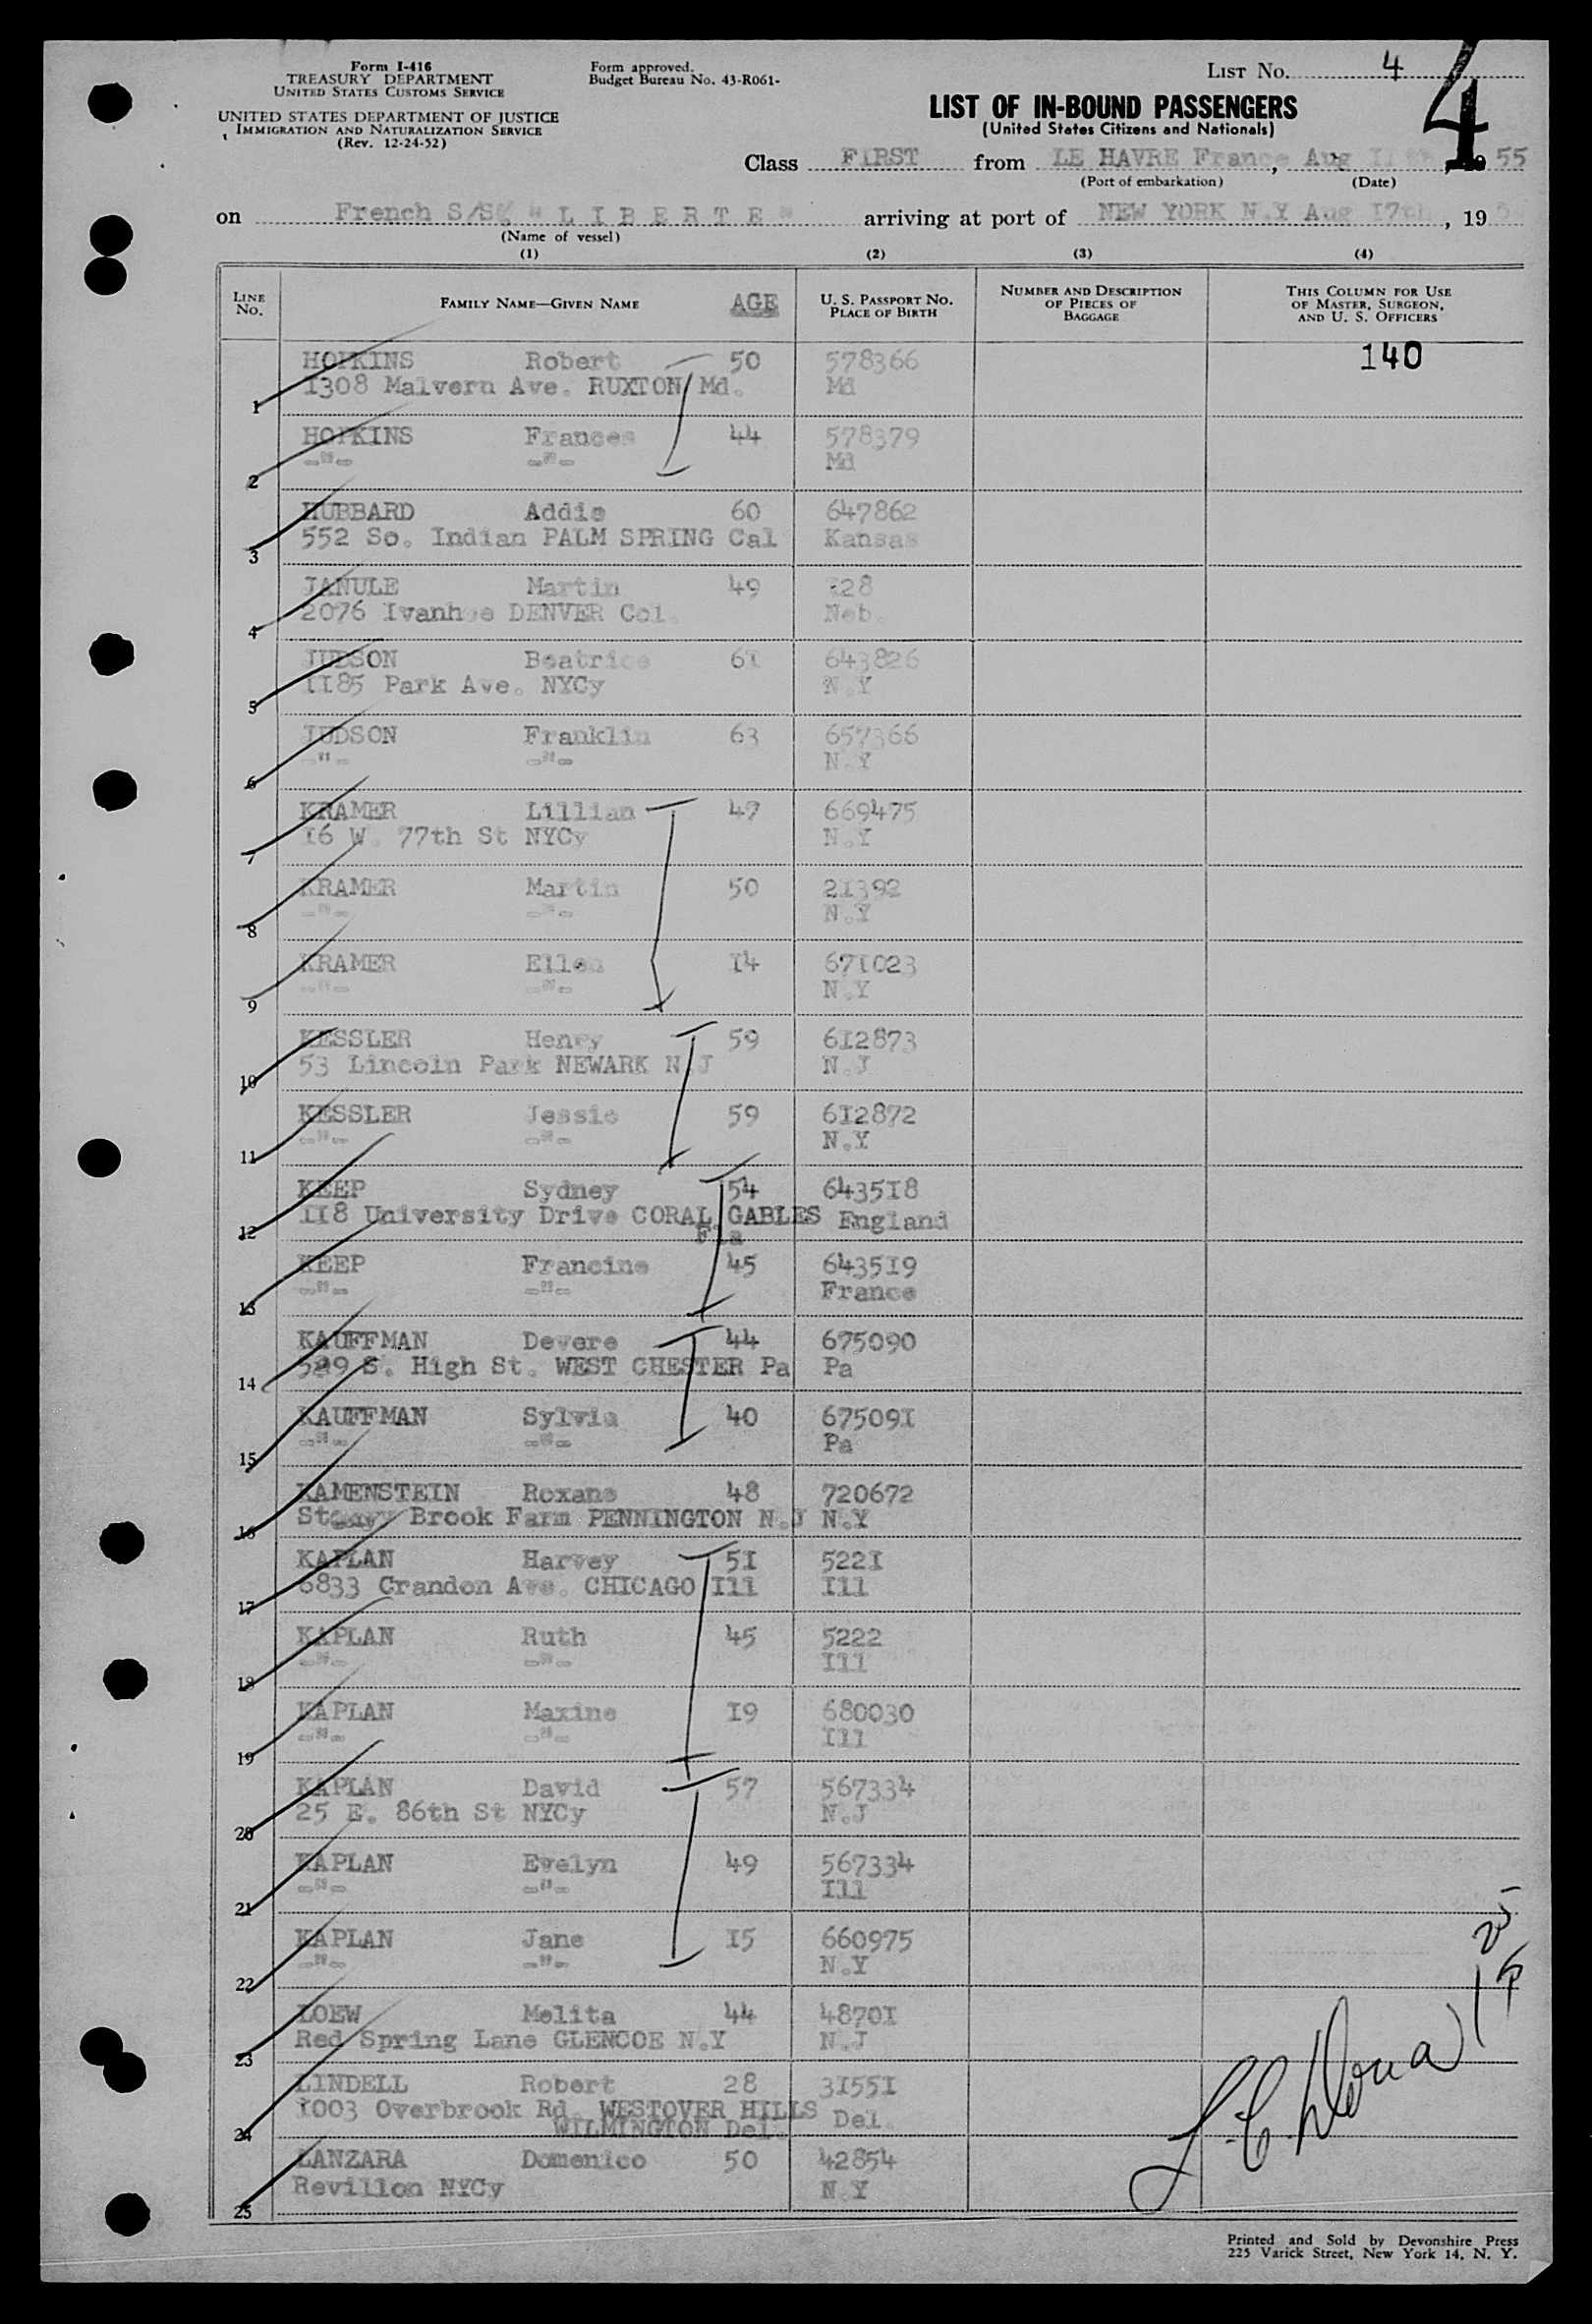 Form I-416
TREASURY DEPARTMENT
UNITED STATES CUSTOMS SERVICE
UNITED STATES DEPARTMENT OF JUSTICE
IMMIGRATION AND NATURALIZATION SERVICE
(Rev. 12-24-52)
Form approved.
Budget Bureau No. 43-R061-
LIST NO. 4
4
LIST OF IN-BOUND PASSENGERS
(United States Citizens and Nationals)
Class FIRST from LE HAVRE France, Aug 11th, 19 55
(Port of embarkation) (Date)
on French S/S " L I B E R T E " arriving at port of NEW YORK N.Y Aug 17th, 19
(Name of vessel)
(1) (2) (3) (4)
LINE NO. FAMILY NAME—GIVEN NAME AGE U. S. PASSPORT NO. PLACE OF BIRTH NUMBER AND DESCRIPTION OF PIECES OF BAGGAGE THIS COLUMN FOR USE OF MASTER, SURGEON, AND U. S. OFFICERS
HOPKINS Robert 50 578366 140
1 1308 Malvern Ave. RUXTON Md. Md
HOPKINS Frances 44 578379
2 -"- -"- Md
HUBBARD Addie 60 647862
3 552 So. Indian PALM SPRING Cal Kansas
JANULE Martin 49 328
4 2076 Ivanhoe DENVER Col. Neb.
JUDSON Beatrice 61 643826
5 1185 Park Ave. NYCy N.Y
JUDSON Franklin 63 657366
6 -"- -"- N.Y
KRAMER Lillian 47 669475
7 16 W. 77th St NYCy N.Y
KRAMER Martin 50 21392
8 -"- -"- N.Y
KRAMER Ellen 14 671023
9 -"- -"- N.Y
KESSLER Henry 59 612873
10 53 Lincoln Park NEWARK N.J N.J
KESSLER Jessie 59 612872
11 -"- -"- N.Y
KEEP Sydney 54 643518
12 118 University Drive CORAL GABLES Fla England
KEEP Francine 45 643519
13 -"- -"- France
KAUFFMAN Devere 44 675090
14 529 S. High St. WEST CHESTER Pa Pa
KAUFFMAN Sylvia 40 675091
15 -"- -"- Pa
KAMENSTEIN Roxane 48 720672
16 Stony Brook Farm PENNINGTON N.J N.Y
KAPLAN Harvey 51 5221
17 6833 Crandon Ave. CHICAGO Ill Ill
KAPLAN Ruth 45 5222
18 -"- -"- Ill
KAPLAN Maxine 19 680030
19 -"- -"- Ill
KAPLAN David 57 567334
20 25 E. 86th St NYCy N.J
KAPLAN Evelyn 49 567334
21 -"- -"- Ill
KAPLAN Jane 15 660975
22 -"- -"- N.Y
LOEW Melita 44 48701
23 Red Spring Lane GLENCOE N.Y N.J
LINDELL Robert 28 31551
24 1003 Overbrook Rd. WESTOVER HILLS Del.
WILMINGTON Del.
LANZARA Domenico 50 42854
25 Revillon NYCy N.Y
Printed and Sold by Devonshire Press
225 Varick Street, New York 14, N. Y.